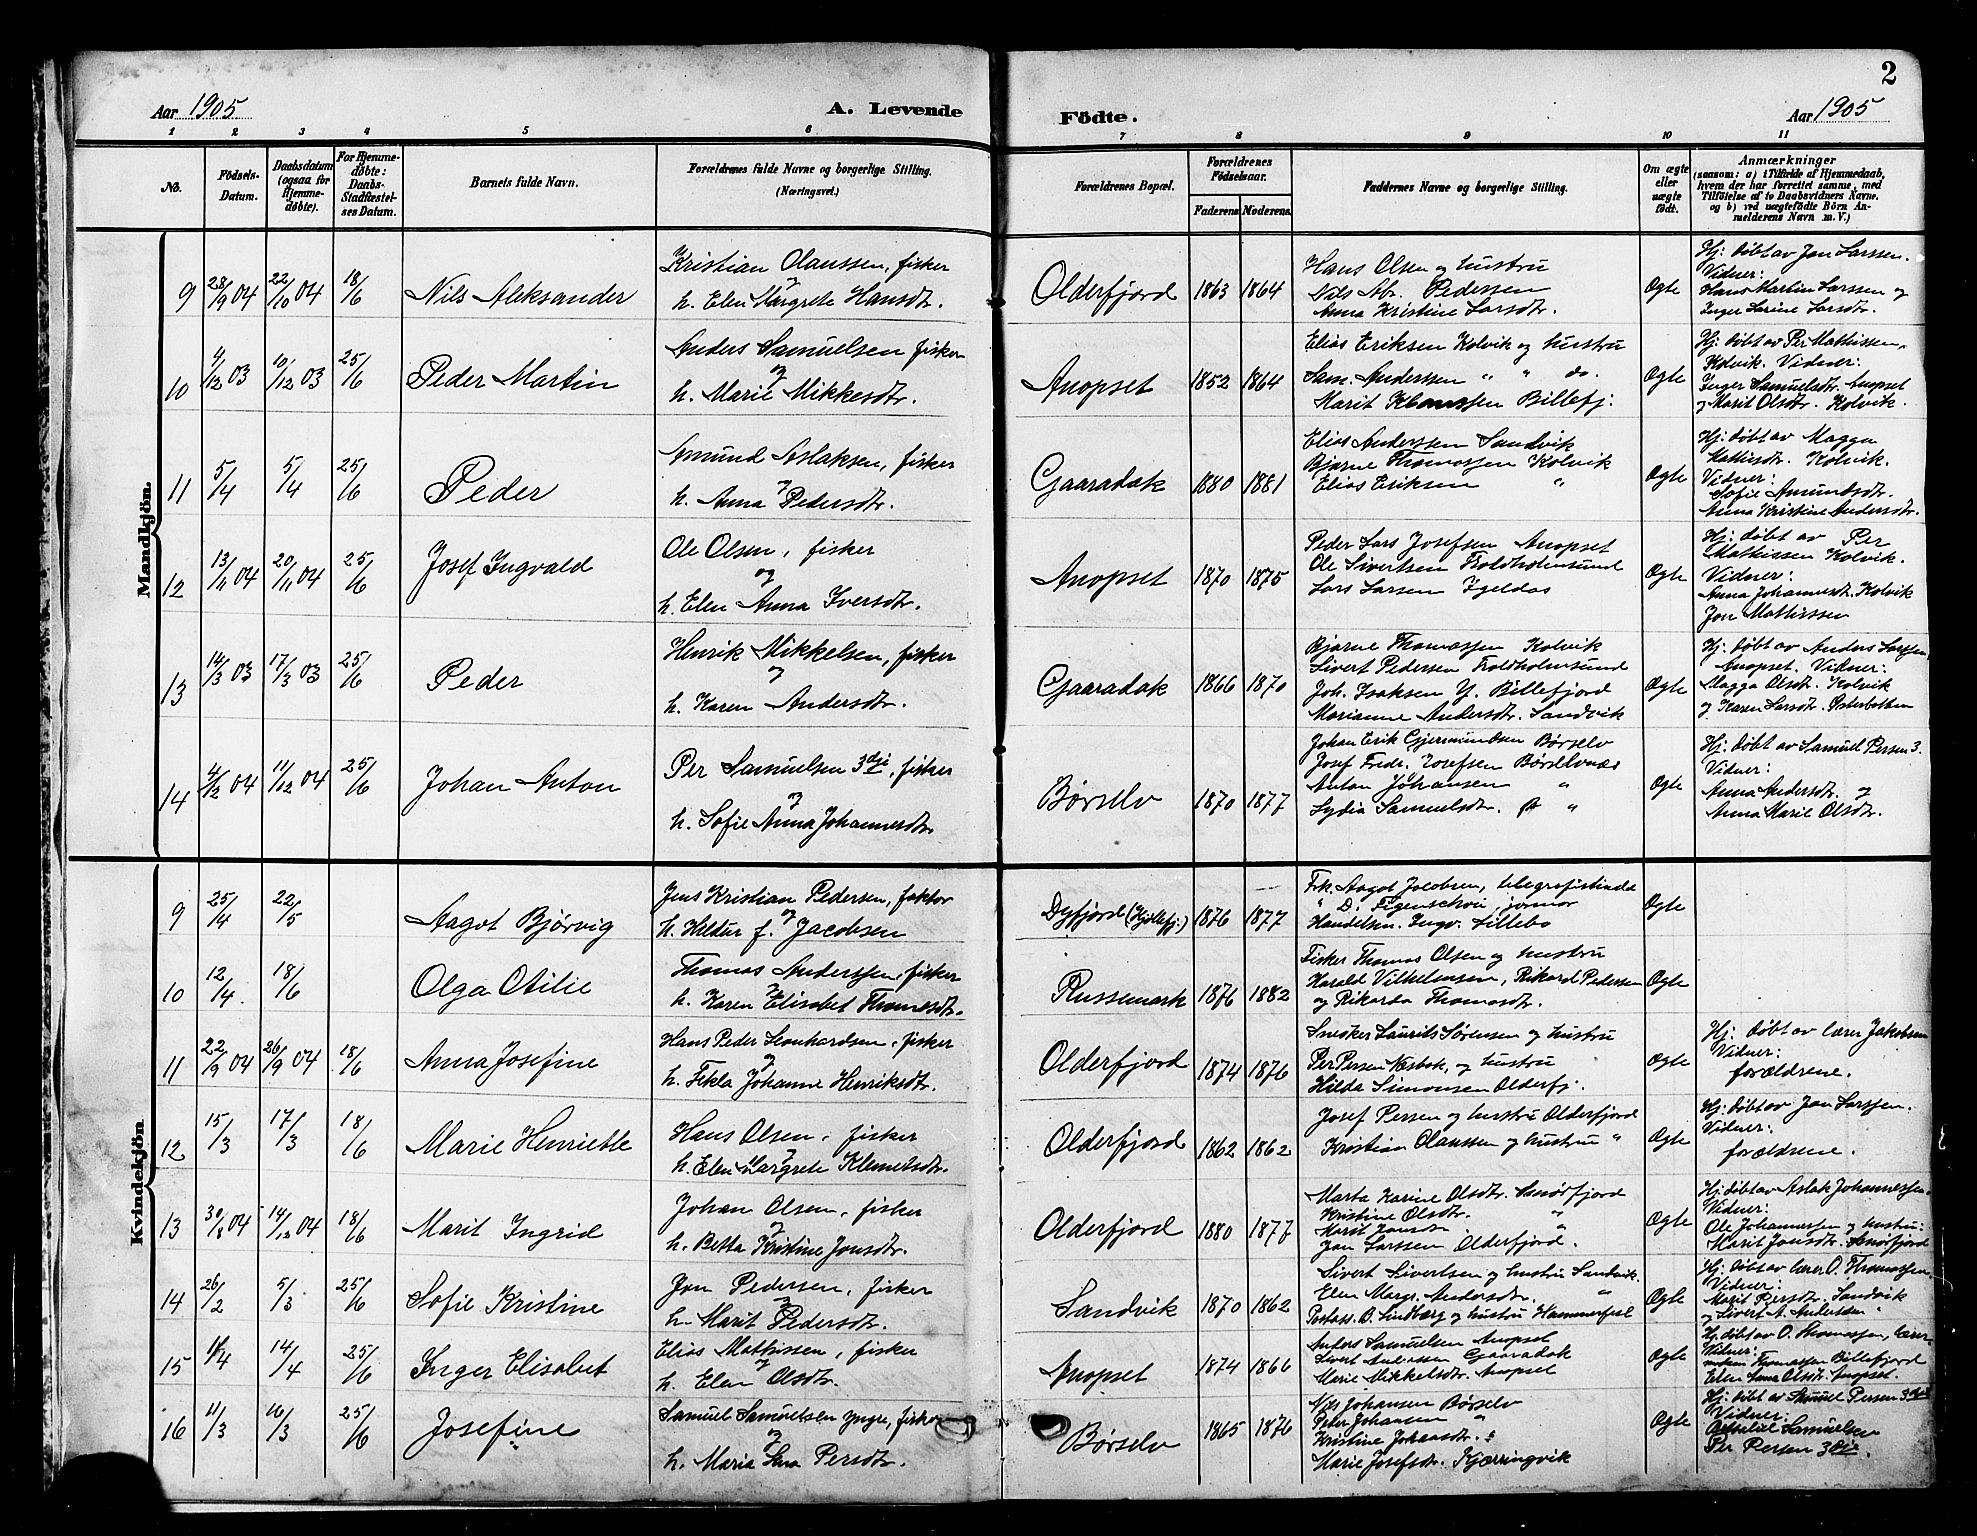 2
Aar 1905
A. Levende
Födte.
Aar 1905
1 2 3 4 5 6 7 8 9 10 11
No.
Födsels-
Datum.
Daabsdatum
(ogsaa for
Hjemme-
døbte).
For Hjemme-
døbte:
Daabs-
Stadfæstel-
ses Datum.
Barnets fulde Navn.
Forældrenes fulde Navne og borgerlige Stilling.
(Næringsvei.)
Forældrenes Bopæl.
Forældrenes
Fødselsaar.
Faderens Moderens
Faddernes Navne og borgerlige Stilling.
Om ægte
eller
uægte
født.
Anmærkninger
(saasom: a) i Tilfælde af Hjemmedaab,
hvem der har forrettet samme, med
Tilföielse af to Daabsvidners Navne.
og b) ved uægtefödte Börn An-
melderens Navn m. V.)
Mandkjön.
9 28/9 04 22/10 04 18/6 Nils Aleksander
Kristian Olaussen, fisker
og
h. Elen Margrete Hansdtr.
Olderfjord 1863 1864
Hans Olsen og hustru
Nils Pedersen
Anna Kristine Larsdtr.
Ægte
Hj. døbt av Jon Larssen.
Vidner:
Hans Martin Larssen og
Inger Larsdtr.
10 4/12 03 10/12 03 25/6 Peder Martin
Anders Samuelsen fisker
og
h. Marie Mikkelsdtr.
Anopset 1852 1864
Elias Eriksen Kolvik og hustru
Sam. Anderssen " " do.
Marit Billefj.
Ægte
Hj. døbt av Per Mathissen,
Kolvik. Vidner:
Inger Samuelsdtr. Anopset
og Marit Olsdtr. Kolvik.
11 5/4 5/4 25/6 Peder
Amund Aslaksen, fisker
og
h. Anna Pedersdtr.
Gaaradak 1880 1881
Elias Anderssen Sandvik
Bjarne Thomassen Kolvik
Elias Eriksen "
Ægte
Hj. døbt av Magga
Mattisdt. Kolvik.
Vidner:
Sofie Amundsdtr.
Anna Kristine Andersdtr.
12 13/11 04 20/11 04 25/6 Josef Ingvald
Ole Olsen, fisker
og
h. Elen Anna Iversdtr.
Anopset 1870 1875
Peder Lars Josefsen Anopset
Ole Sivertsen Troldholmsund
Lars Larsen Igeldas
Ægte
Hj. døbt av Per
Mathissen Kolvik.
Vidner:
Anna Johannesdt. Kolvik
Jon Mathissen
13 14/3 03 17/3 03 25/6 Peder
Henrik Mikkelsen, fisker
og
h. Karen Andersdtr.
Gaaradak 1866 1870
Bjarne Thomassen Kolvik
Sivert Pedersen Troldholmsund
Joh. Isaksen Y. Billefjord
Marianne Andersdtr. Sandvik
Ægte
Hj. døbt av Anders Larssen,
Anopset. Vidner:
Magga Olsdt. Kolvik
og Karen Larsdtr. Østerbotten
14 4/12 04 11/12 04 25/6 Johan Anton
Per Samuelsen 3dje, fisker
og
h. Sofie Anna Johannesdtr.
Børselv 1870 1877
Johan Erik Gjermundsen Børselv
Josef Fredr. Josefsen Børselvnæs
Anton Johansen "
Lydia Samuelsdtr. "
Ægte
Hj. døbt av Samuel Persen 3.
Vidner:
Anna Andersdtr. og
Anna Marie Olsdtr.
Kvindekjön.
9 25/4 22/5 Aagot Bjørvig
Jens Kristian Pedersen, faktor
og
h. Hildur f. Jacobsen
Dyfjord (Kjøllefj.) 1876 1877
Frk. Aagot Jacobsen, telegrafistinde
" D. Figenschou, jornor
Handelsm. Ingv. Lillebo
Ægte
10 12/4 18/6 Olga Otilie
Thomas Anderssen, fisker
og
h. Karen Elisabet Thomasdtr.
Russemark 1876 1882
Fisker Thomas Olsen og hustru
Harald Vilhelmsen, Rikard Pedersen
og Rikarda Thomasdtr.
Ægte
11 22/9 04 26/9 04 18/6 Anna Josefine
Hans Peder Leonhardsen, fisker
og
h. Tekla Johanne Henriksdtr.
Olderfjord 1874 1876
Snedker Laurits Sørensen og hustru
Per Persen Næsbak, og hustru
Hilda Simonsen Olderfj.
Ægte
Hj. døbt av lærer Jakobsen
Vidner:
forældrene.
12 15/3 17/3 18/6 Marie Henriette
Hans Olsen, fisker
og
h. Elen Margrete Klemetsdtr.
Olderfjord 1862 1862
Josef Persen og hustru Olderfjord
Kristian Olaussen og hustru "
Ægte
Hj. døbt av Jon Larssen.
Vidner:
forældrene.
13 30/8 04 14/12 04 18/6 Marit Ingrid
Johan Olsen, fisker
og
h. Betta Kristine Jonsdtr.
Olderfjord 1880 1877
Marta Karine Olsdtr. Snøfjord
Kristine Olsdtr. "
Marit "
Jon Larssen Olderfjord.
Ægte
Hj. døbt av Aslak Johannessen.
Vidner:
Ole Johannessen og hustru:
Marit Jonsdtr. Snøfjord
14 26/2 5/3 25/6 Sofie Kristine
Jon Pedersen, fisker
og
h. Marit Pedersdtr.
Sandvik 1870 1862
Sivert Sivertsen og hustru Sandvik.
Elen Margr. Andersdtr. "
Postass. O. Lindberg og hustru Hammerfest
Ægte
Hj. døbt av lærer O. Thomassen.
Vidner:
Marit Persdtr. Sandvik
og Sivert A. Anderssen "
15 11/4 14/4 25/6 Inger Elisabet
Elias Mathissen, fisker
og
h. Elen Olsdtr.
Anopset 1874 1866
Anders Samuelsen Anopset
Sivert Anderssen Gaaradak
Marie Mikkelsdtr. Anopset
Ægte
Hj. døbt av O. Thomassen, lærer
Vidner:
Thomassen Billefjord
Elen Anna Olsdtr. Anopset.
16 11/3 16/3 25/6 Josefine
Samuel Samuelsen yngre, fisker
og
h. Maria Persdtr.
Børselv 1865 1876
Nils Johansen Børselv
Peder Johansen "
Kristine Johansdtr. "
Marie Josefsdtr. Kjærringvik
Ægte
Hj. døbt av Samuel Persen 3dje
Vidner:
Samuelsen
Per Persen 3dje.